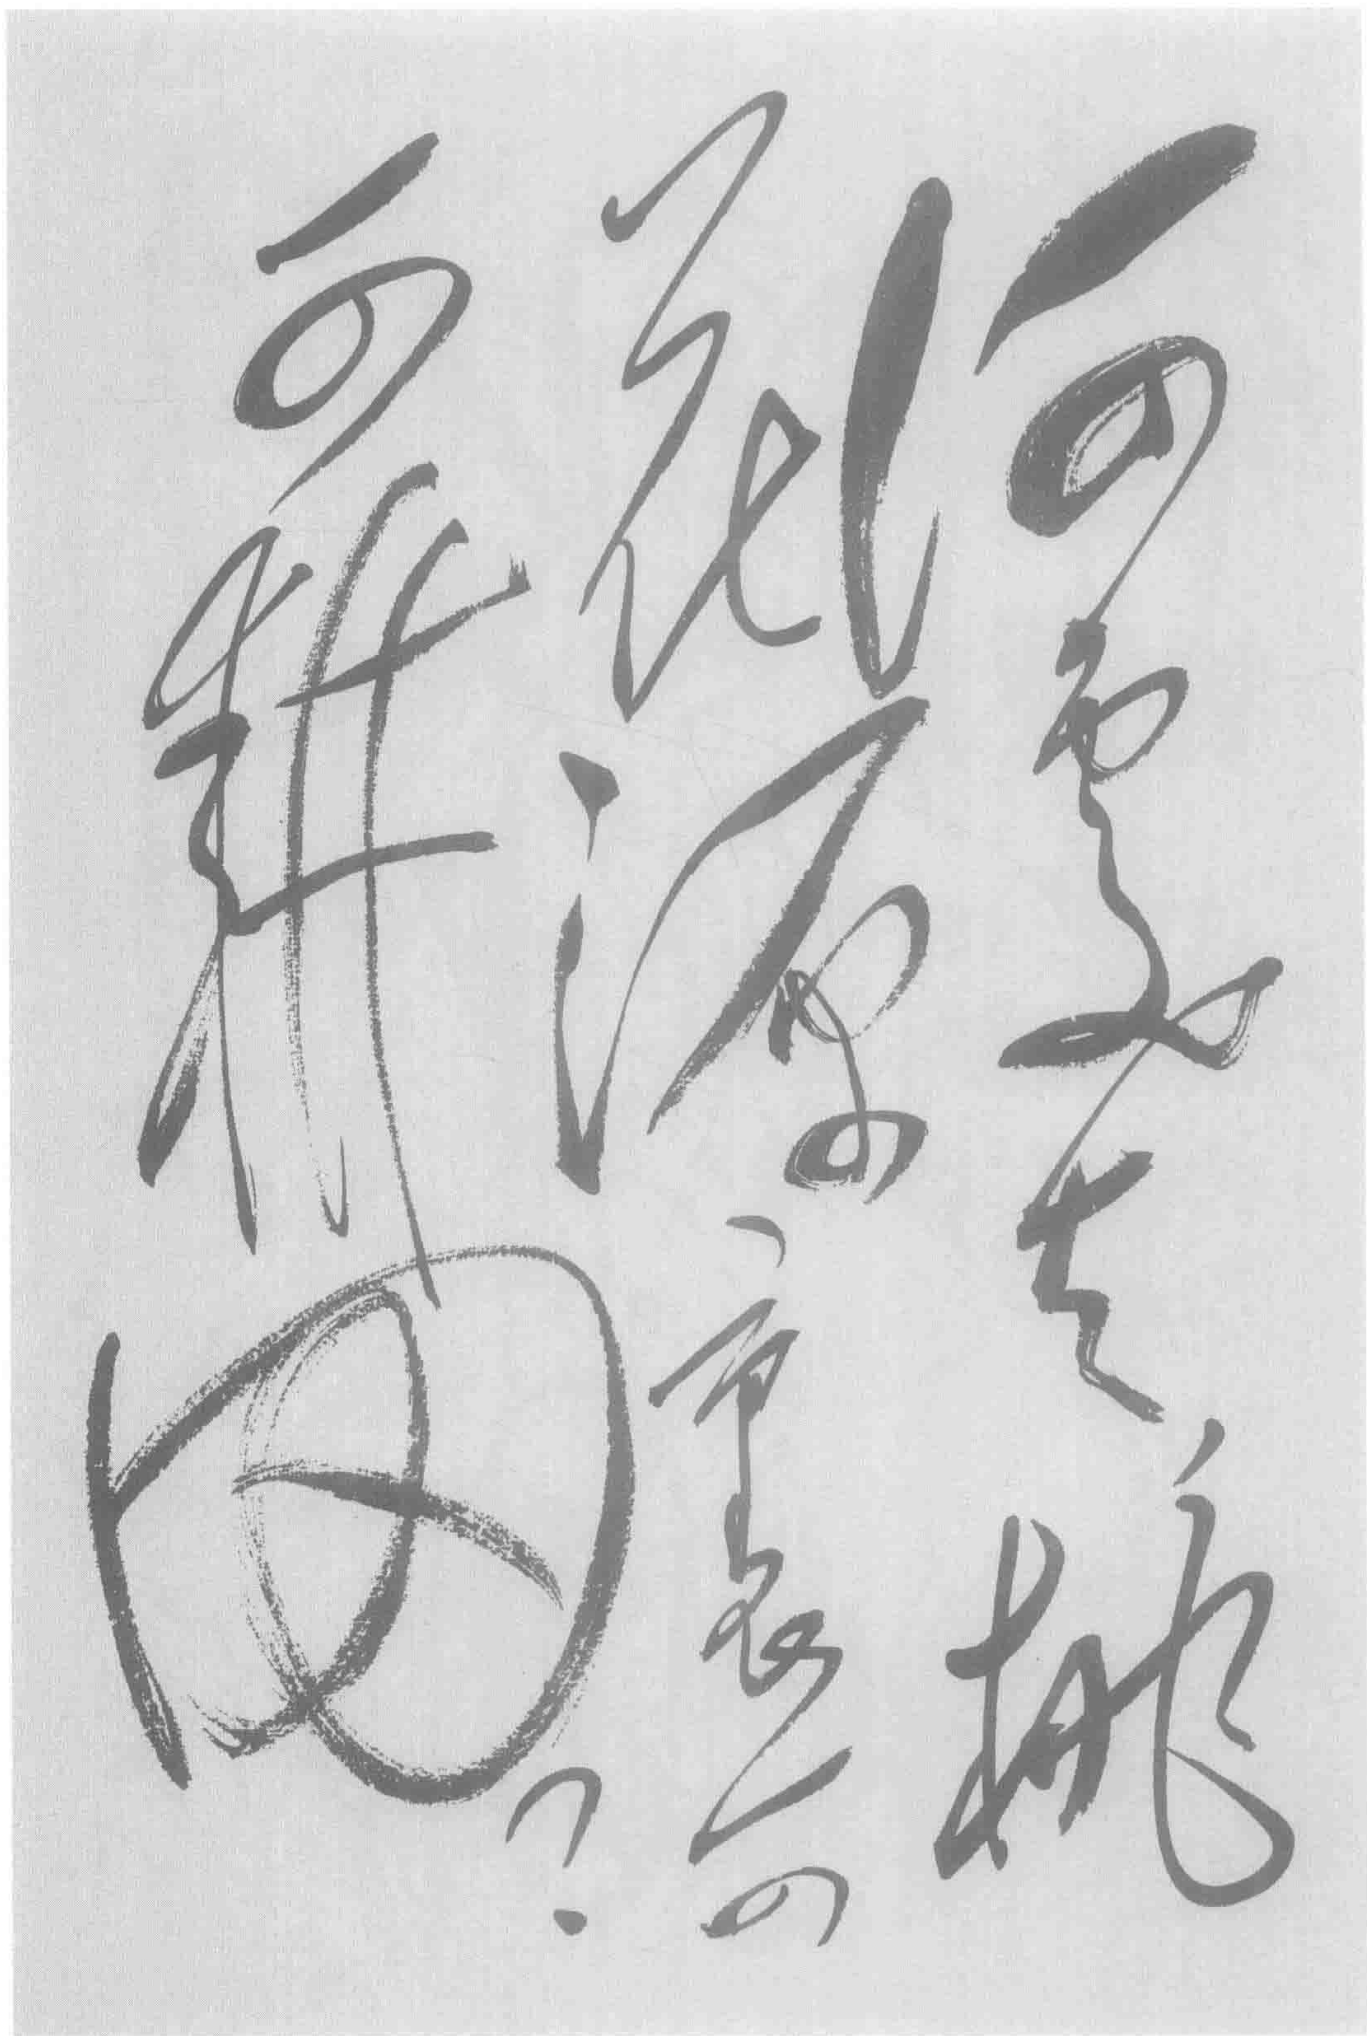 何處去桃
花源裏可
可耕田?